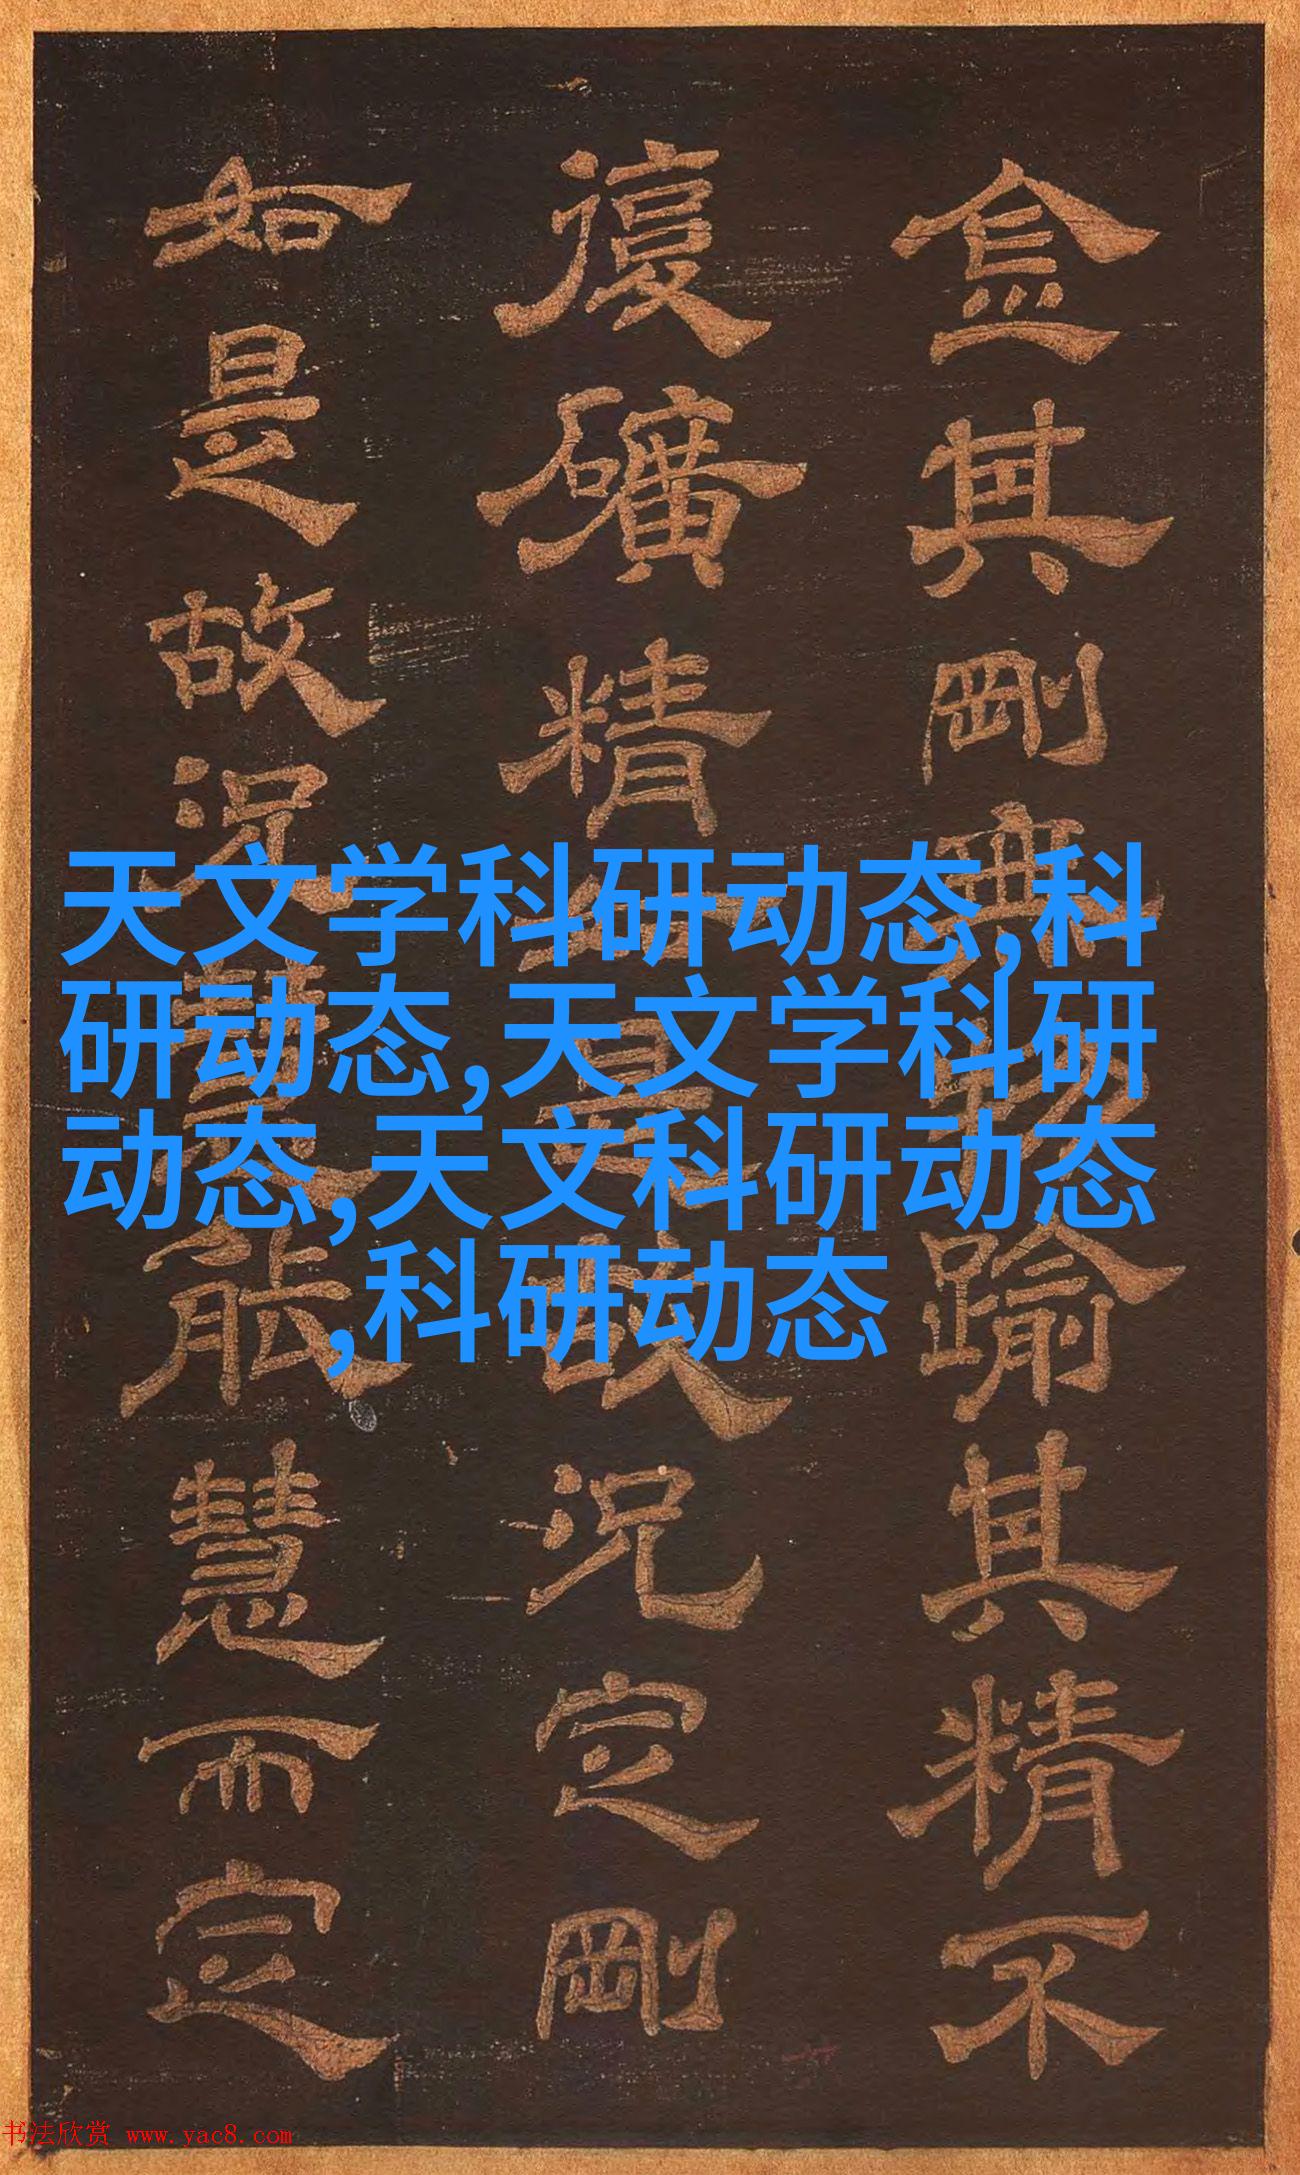 金其剛無踰其精不
復礦精是故況定剛
如是故況能慧而定
天文学科研动态,科
研动态,天文学科研
动态,天文科研动态
,科研动态
书法欣赏 www.yac8.com